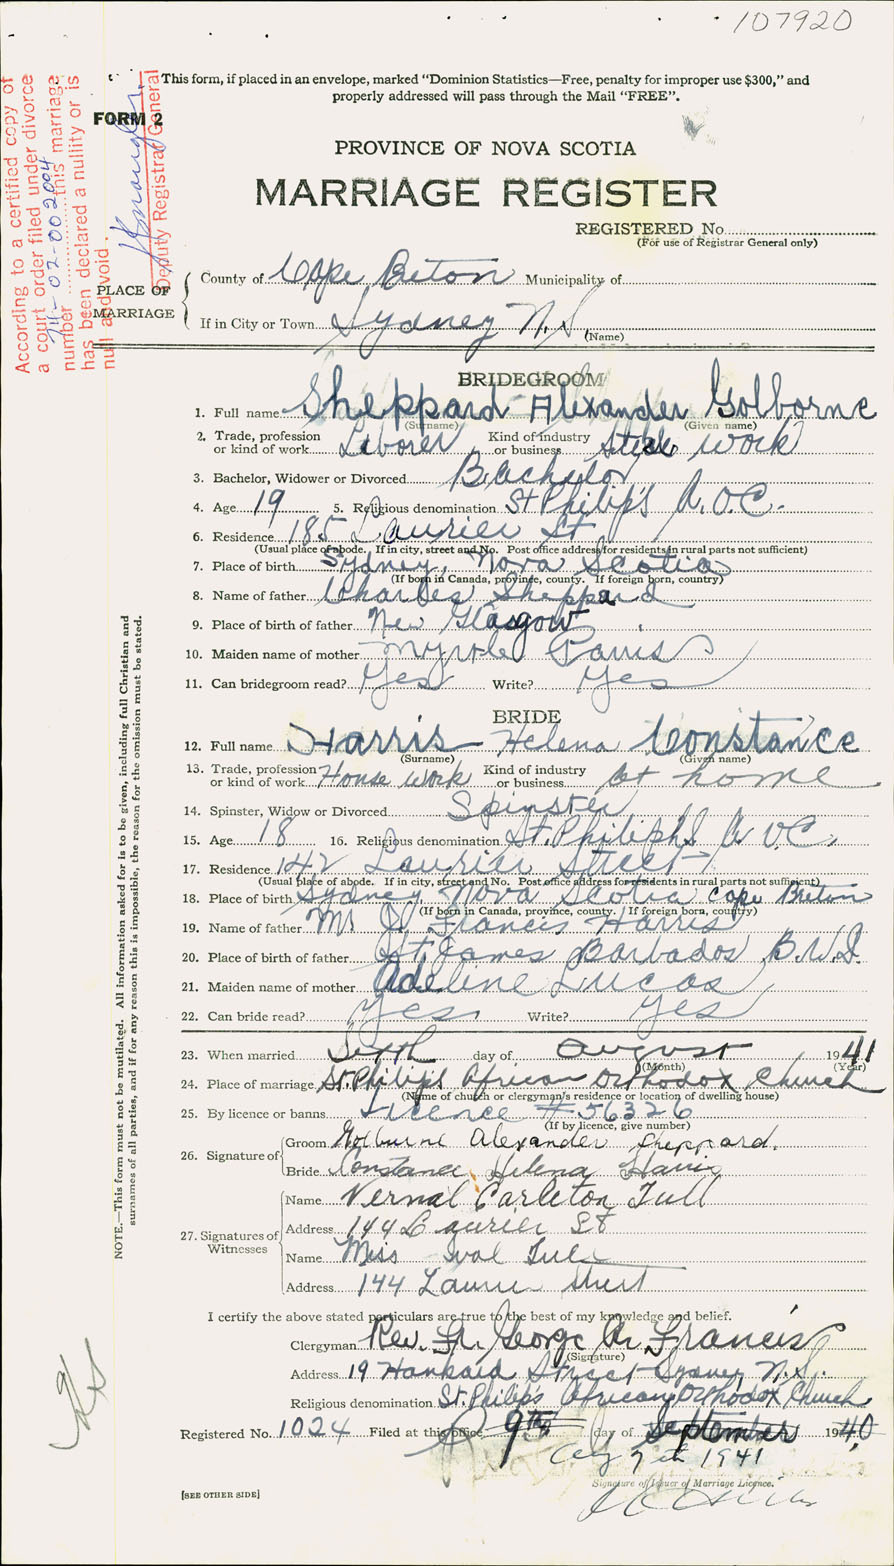 107920
This form, if placed in an envelope, marked “Dominion Statistics—Free, penalty for improper use $300,” and
properly addressed will pass through the Mail “FREE”.
FORM 2
According to a certified copy of
a court order filed under divorce
number 02-002004 this marriage
has been declared a nullity or is
null and void.
Deputy Registrar General
PROVINCE OF NOVA SCOTIA
MARRIAGE REGISTER
REGISTERED No.
(For use of Registrar General only)
PLACE OF
MARRIAGE
County of Cape Breton Municipality of
If in City or Town Sydney N.S.
(Name)
BRIDEGROOM
1. Full name Sheppard Alexander Golborne
(Surname) (Given name)
2. Trade, profession
or kind of work Laborer Kind of industry
or business Steel work
3. Bachelor, Widower or Divorced Bachelor
4. Age 19 5. Religious denomination St Philip's A.O.C.
6. Residence 185 Laurier St
(Usual place of abode. If in city, street and No. Post office address for residents in rural parts not sufficient)
7. Place of birth Sydney, Nova Scotia
(If born in Canada, province, county. If foreign born, country)
8. Name of father Charles Sheppard
9. Place of birth of father New Glasgow
10. Maiden name of mother Myrtle Parris
11. Can bridegroom read? Yes Write? Yes
BRIDE
12. Full name Harris Helena Constance
(Surname) (Given name)
13. Trade, profession
or kind of work House work Kind of industry
or business at home
14. Spinster, Widow or Divorced Spinster
15. Age 18 16. Religious denomination St. Philiph's A O C.
17. Residence 142 Laurier Street
(Usual place of abode. If in city, street and No. Post office address for residents in rural parts not sufficient)
18. Place of birth Sydney, Nova Scotia Cape Breton
(If born in Canada, province, county. If foreign born, country)
19. Name of father Mr Francis Harris
20. Place of birth of father St. James Barbados B.W.I.
21. Maiden name of mother Adeline Lucas
22. Can bride read? Yes Write? Yes
23. When married Sixth day of August 1941
(Month) (Year)
24. Place of marriage St. Philip's African Orthodox Church
(Name of church or clergyman's residence or location of dwelling house)
25. By licence or banns Licence # 56326
(If by licence, give number)
26. Signature of
Groom Golburne Alexander Sheppard.
Bride Constance Helena Harris
27. Signatures of
Witnesses
Name Vernal Carleton Tull
Address 144 Laurier St
Name Miss Tull
Address 144 Laurier Street
I certify the above stated particulars are true to the best of my knowledge and belief.
Clergyman Rev. Fr. George A. Francis
(Signature)
Address 19 Hankard Street Sydney, N.S.
Religious denomination St. Philip's African Orthodox Church
Registered No. 1024 Filed at this office 9th day of September 1940
7th 1941
Signature of Issuer of Marriage Licence.
[SEE OTHER SIDE]
NOTE.—This form must not be mutilated. All information asked for is to be given, including full Christian and
surnames of all parties, and if for any reason this is impossible, the reason for the omission must be stated.